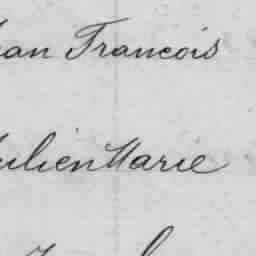 ean Francois
ulien Marie